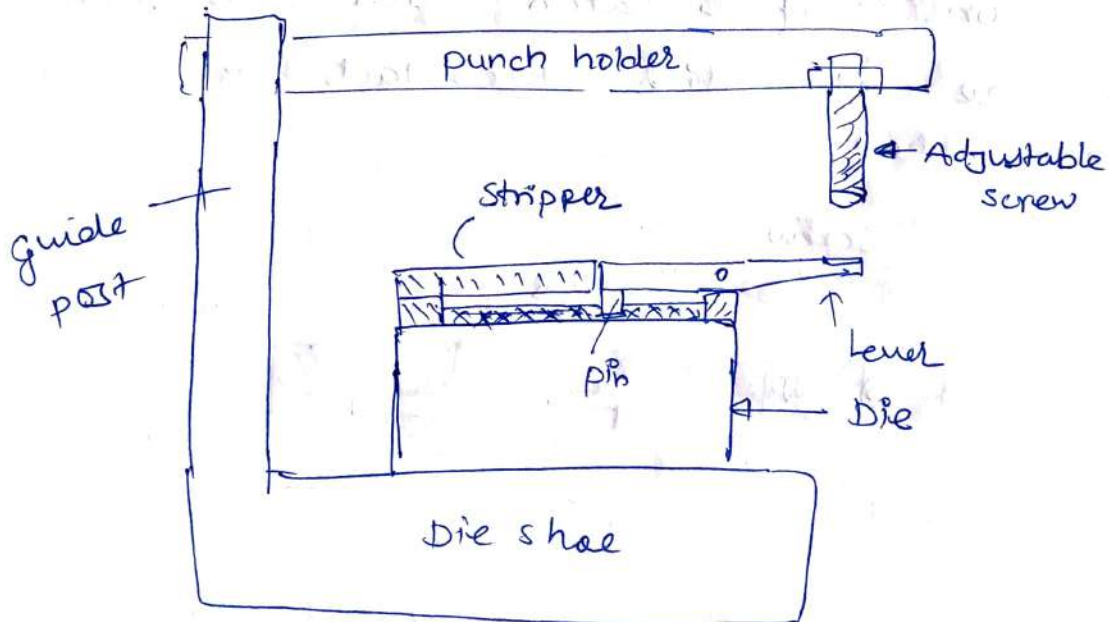 punch holder
Adjustable
screw
Stripper
guide
post
pin
Lever
Die
Die shoe